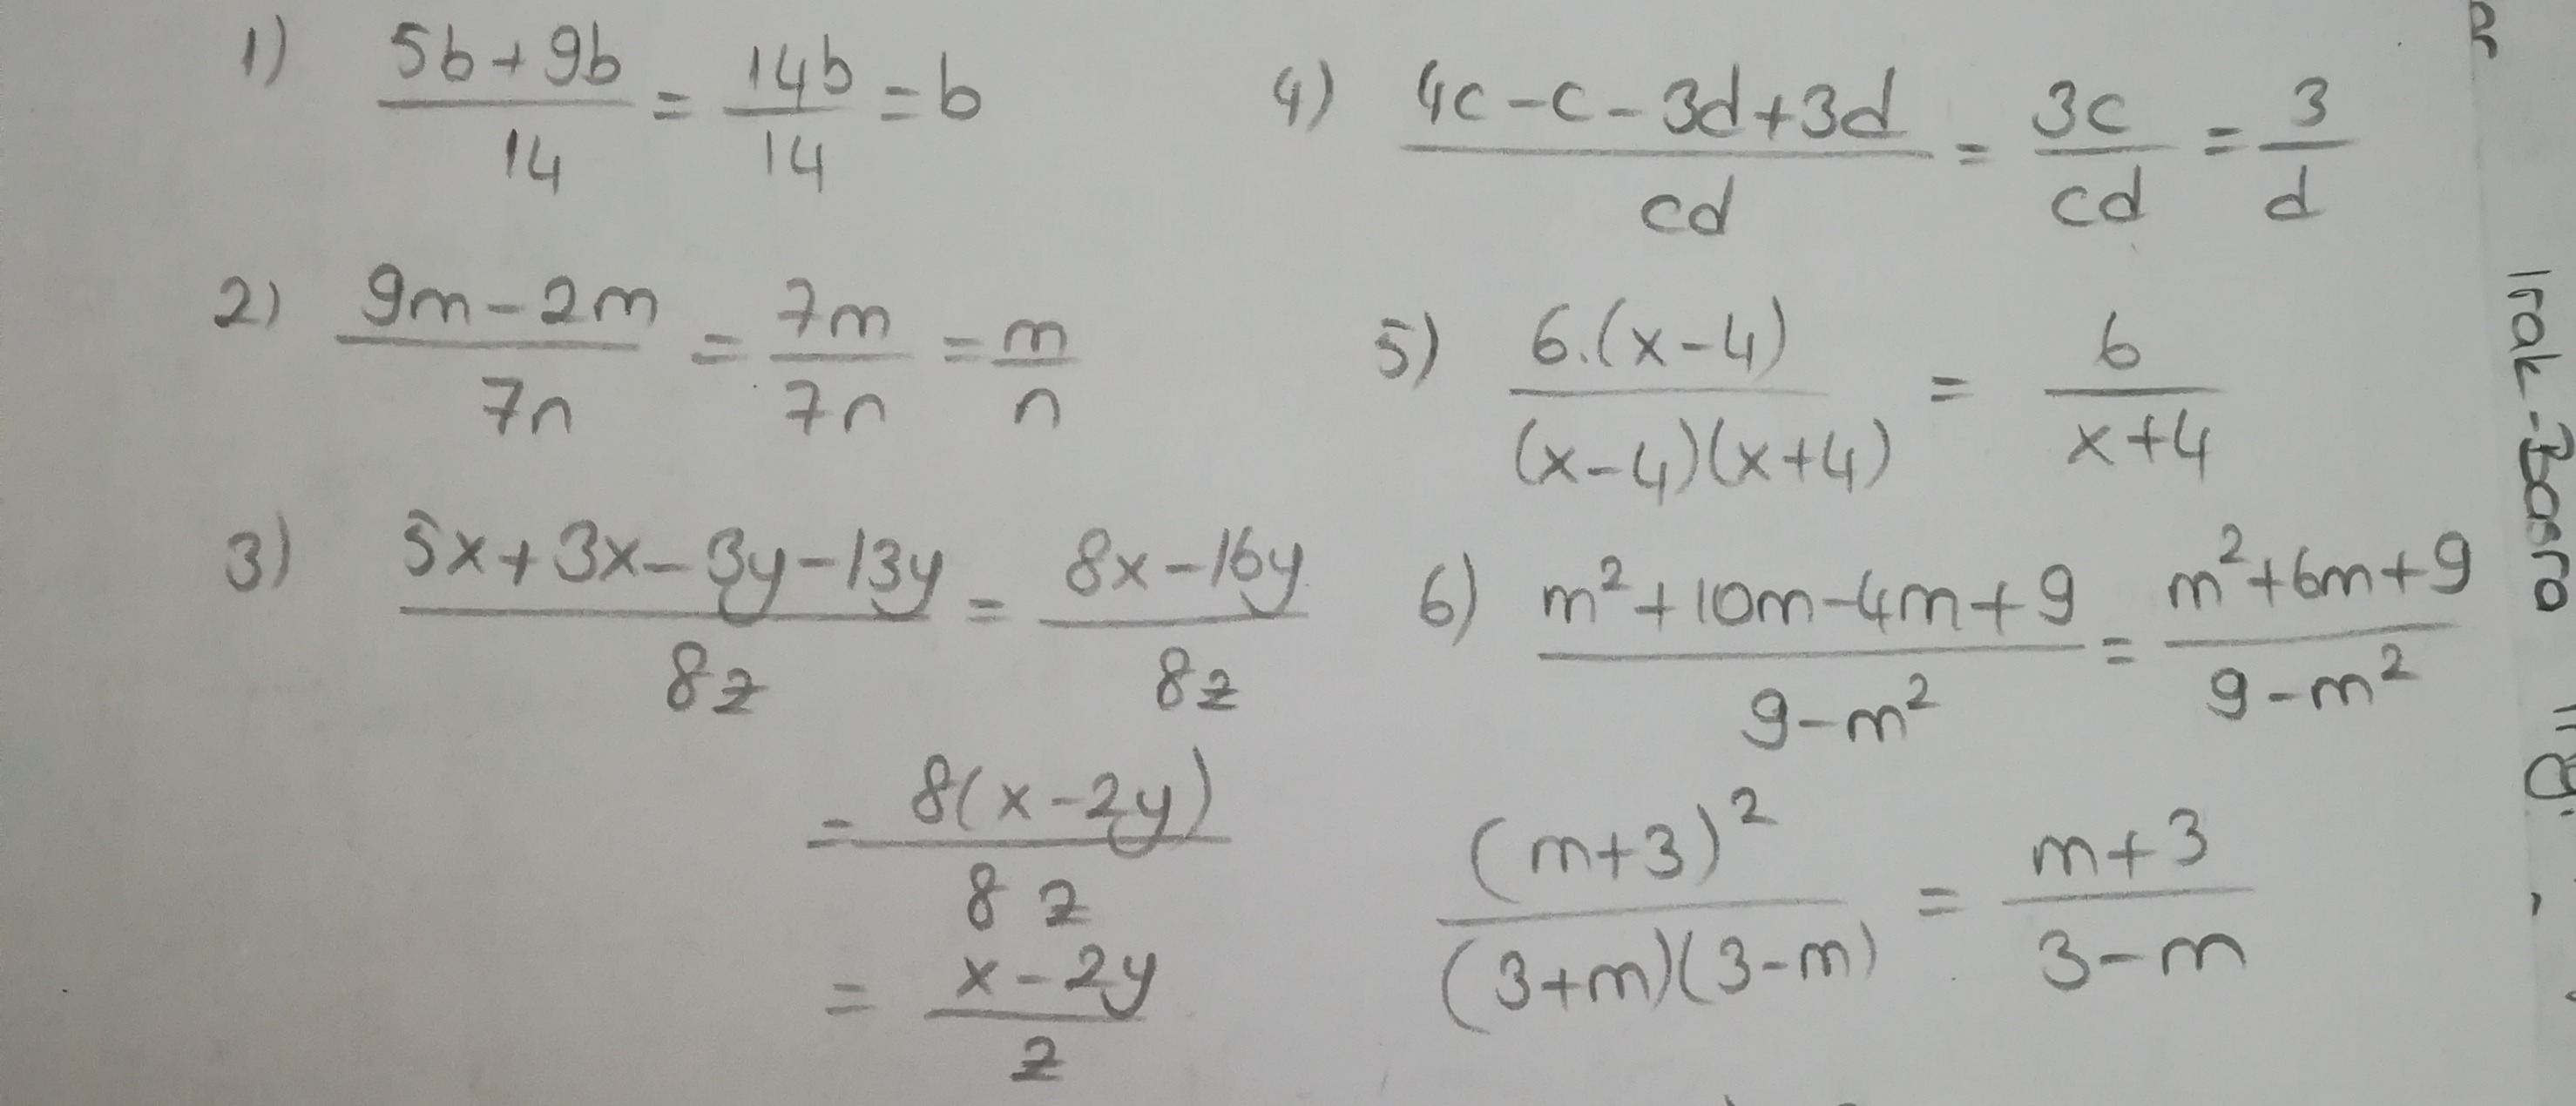 1) (5b+9b)/14 = 14b/14 = b
2) (9m-2m)/7n = 7m/7n = m/n
3) (5x+3x-3y-13y)/8z = (8x-16y)/8z
= 8(x-2y)/8z
= (x-2y)/z
4) (4c-c-3d+3d)/cd = 3c/cd = 3/d
5) 6.(x-4)/(x-4)(x+4) = 6/(x+4)
6) (m²+10m-4m+9)/(9-m²) = (m²+6m+9)/(9-m²)
(m+3)²/(3+m)(3-m) = (m+3)/(3-m)